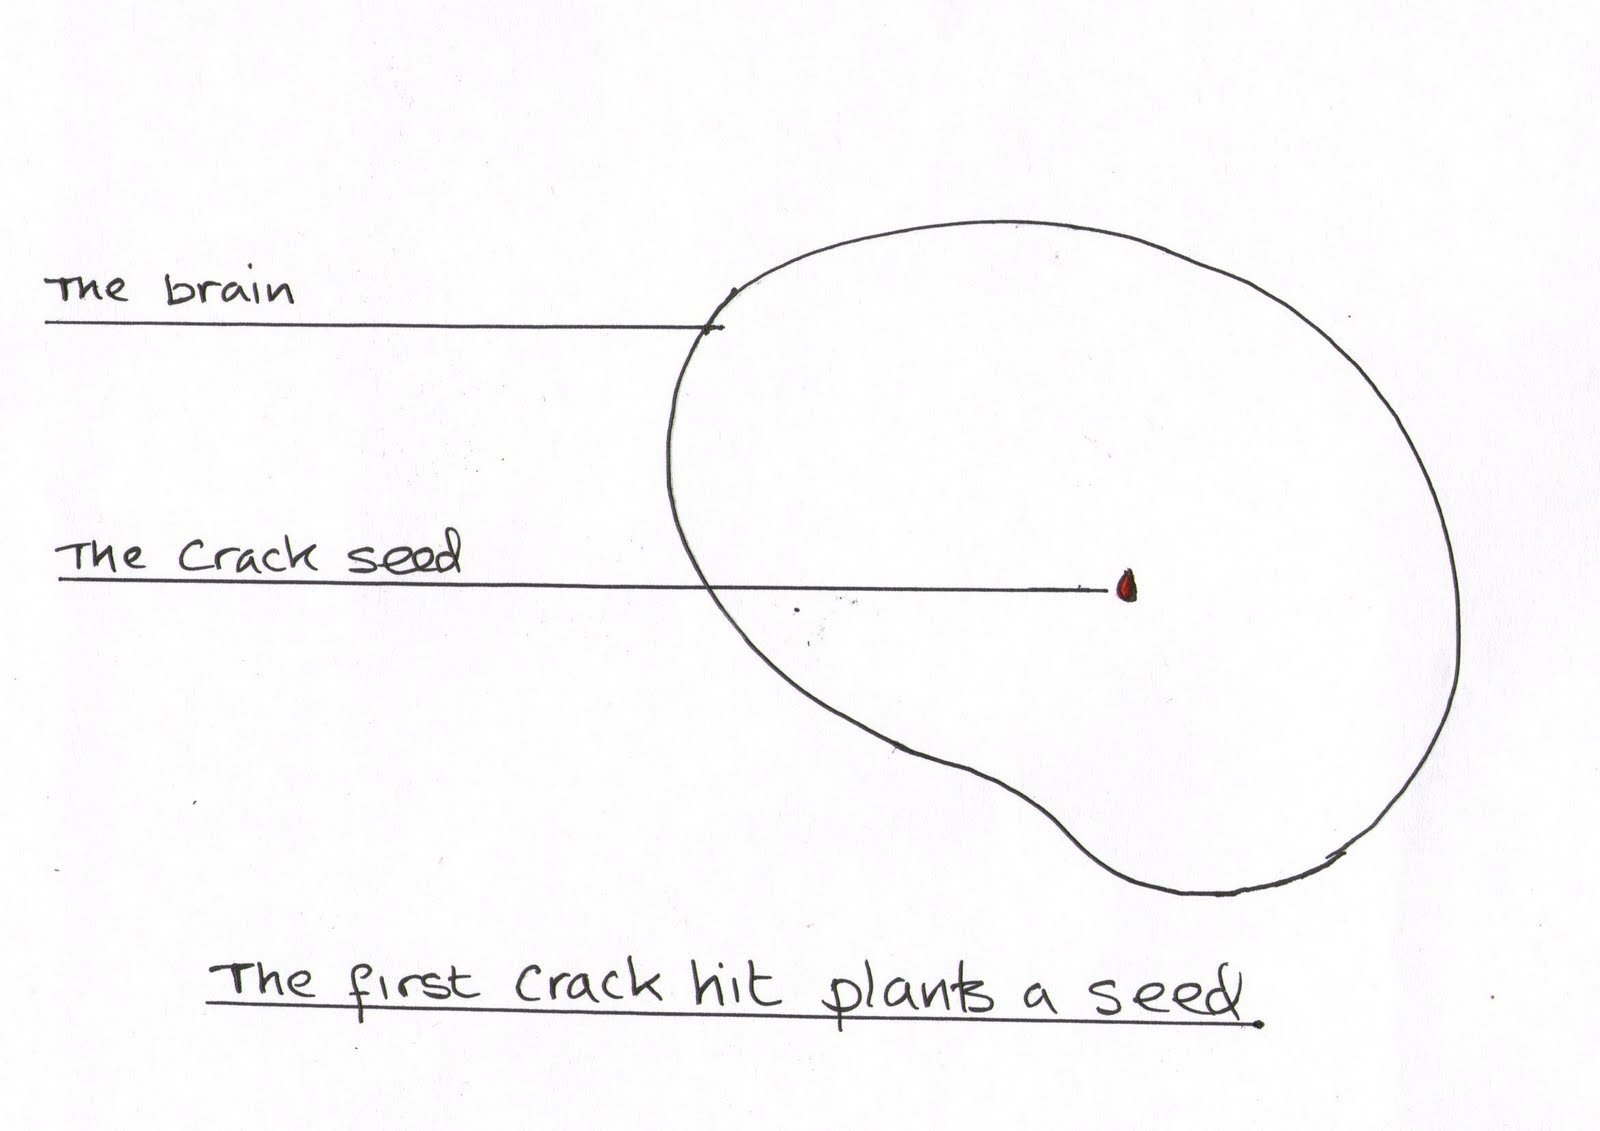 The brain
The crack seed
The first crack hit plants a seed.